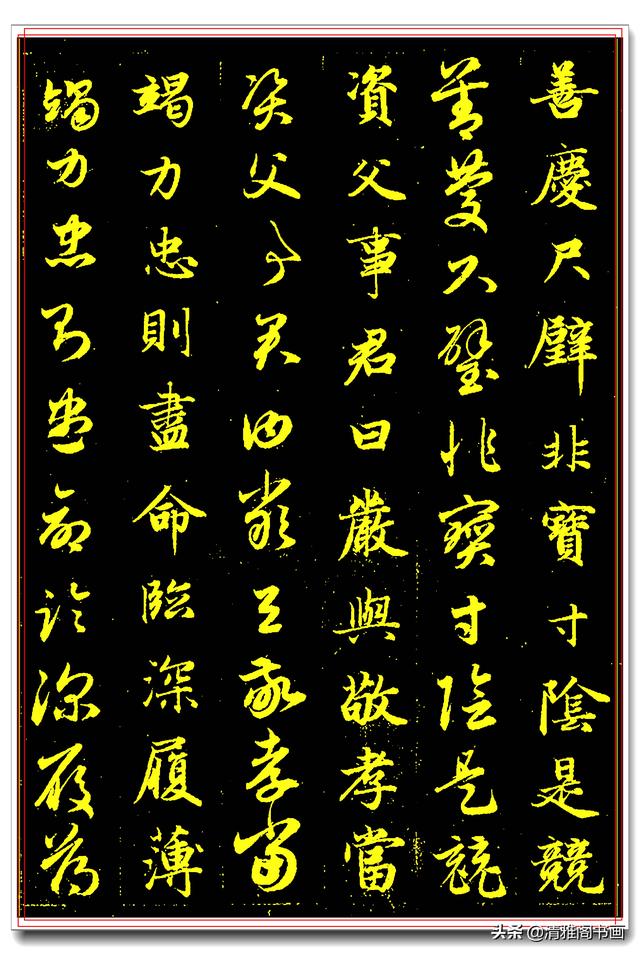 善慶尺璧非寶寸陰是競
善慶尺璧非寶寸陰是競
資父事君曰嚴與敬孝當
資父事君曰嚴與敬孝當
竭力忠則盡命臨深履薄
竭力忠則盡命臨深履薄
头条 @清雅阁书画